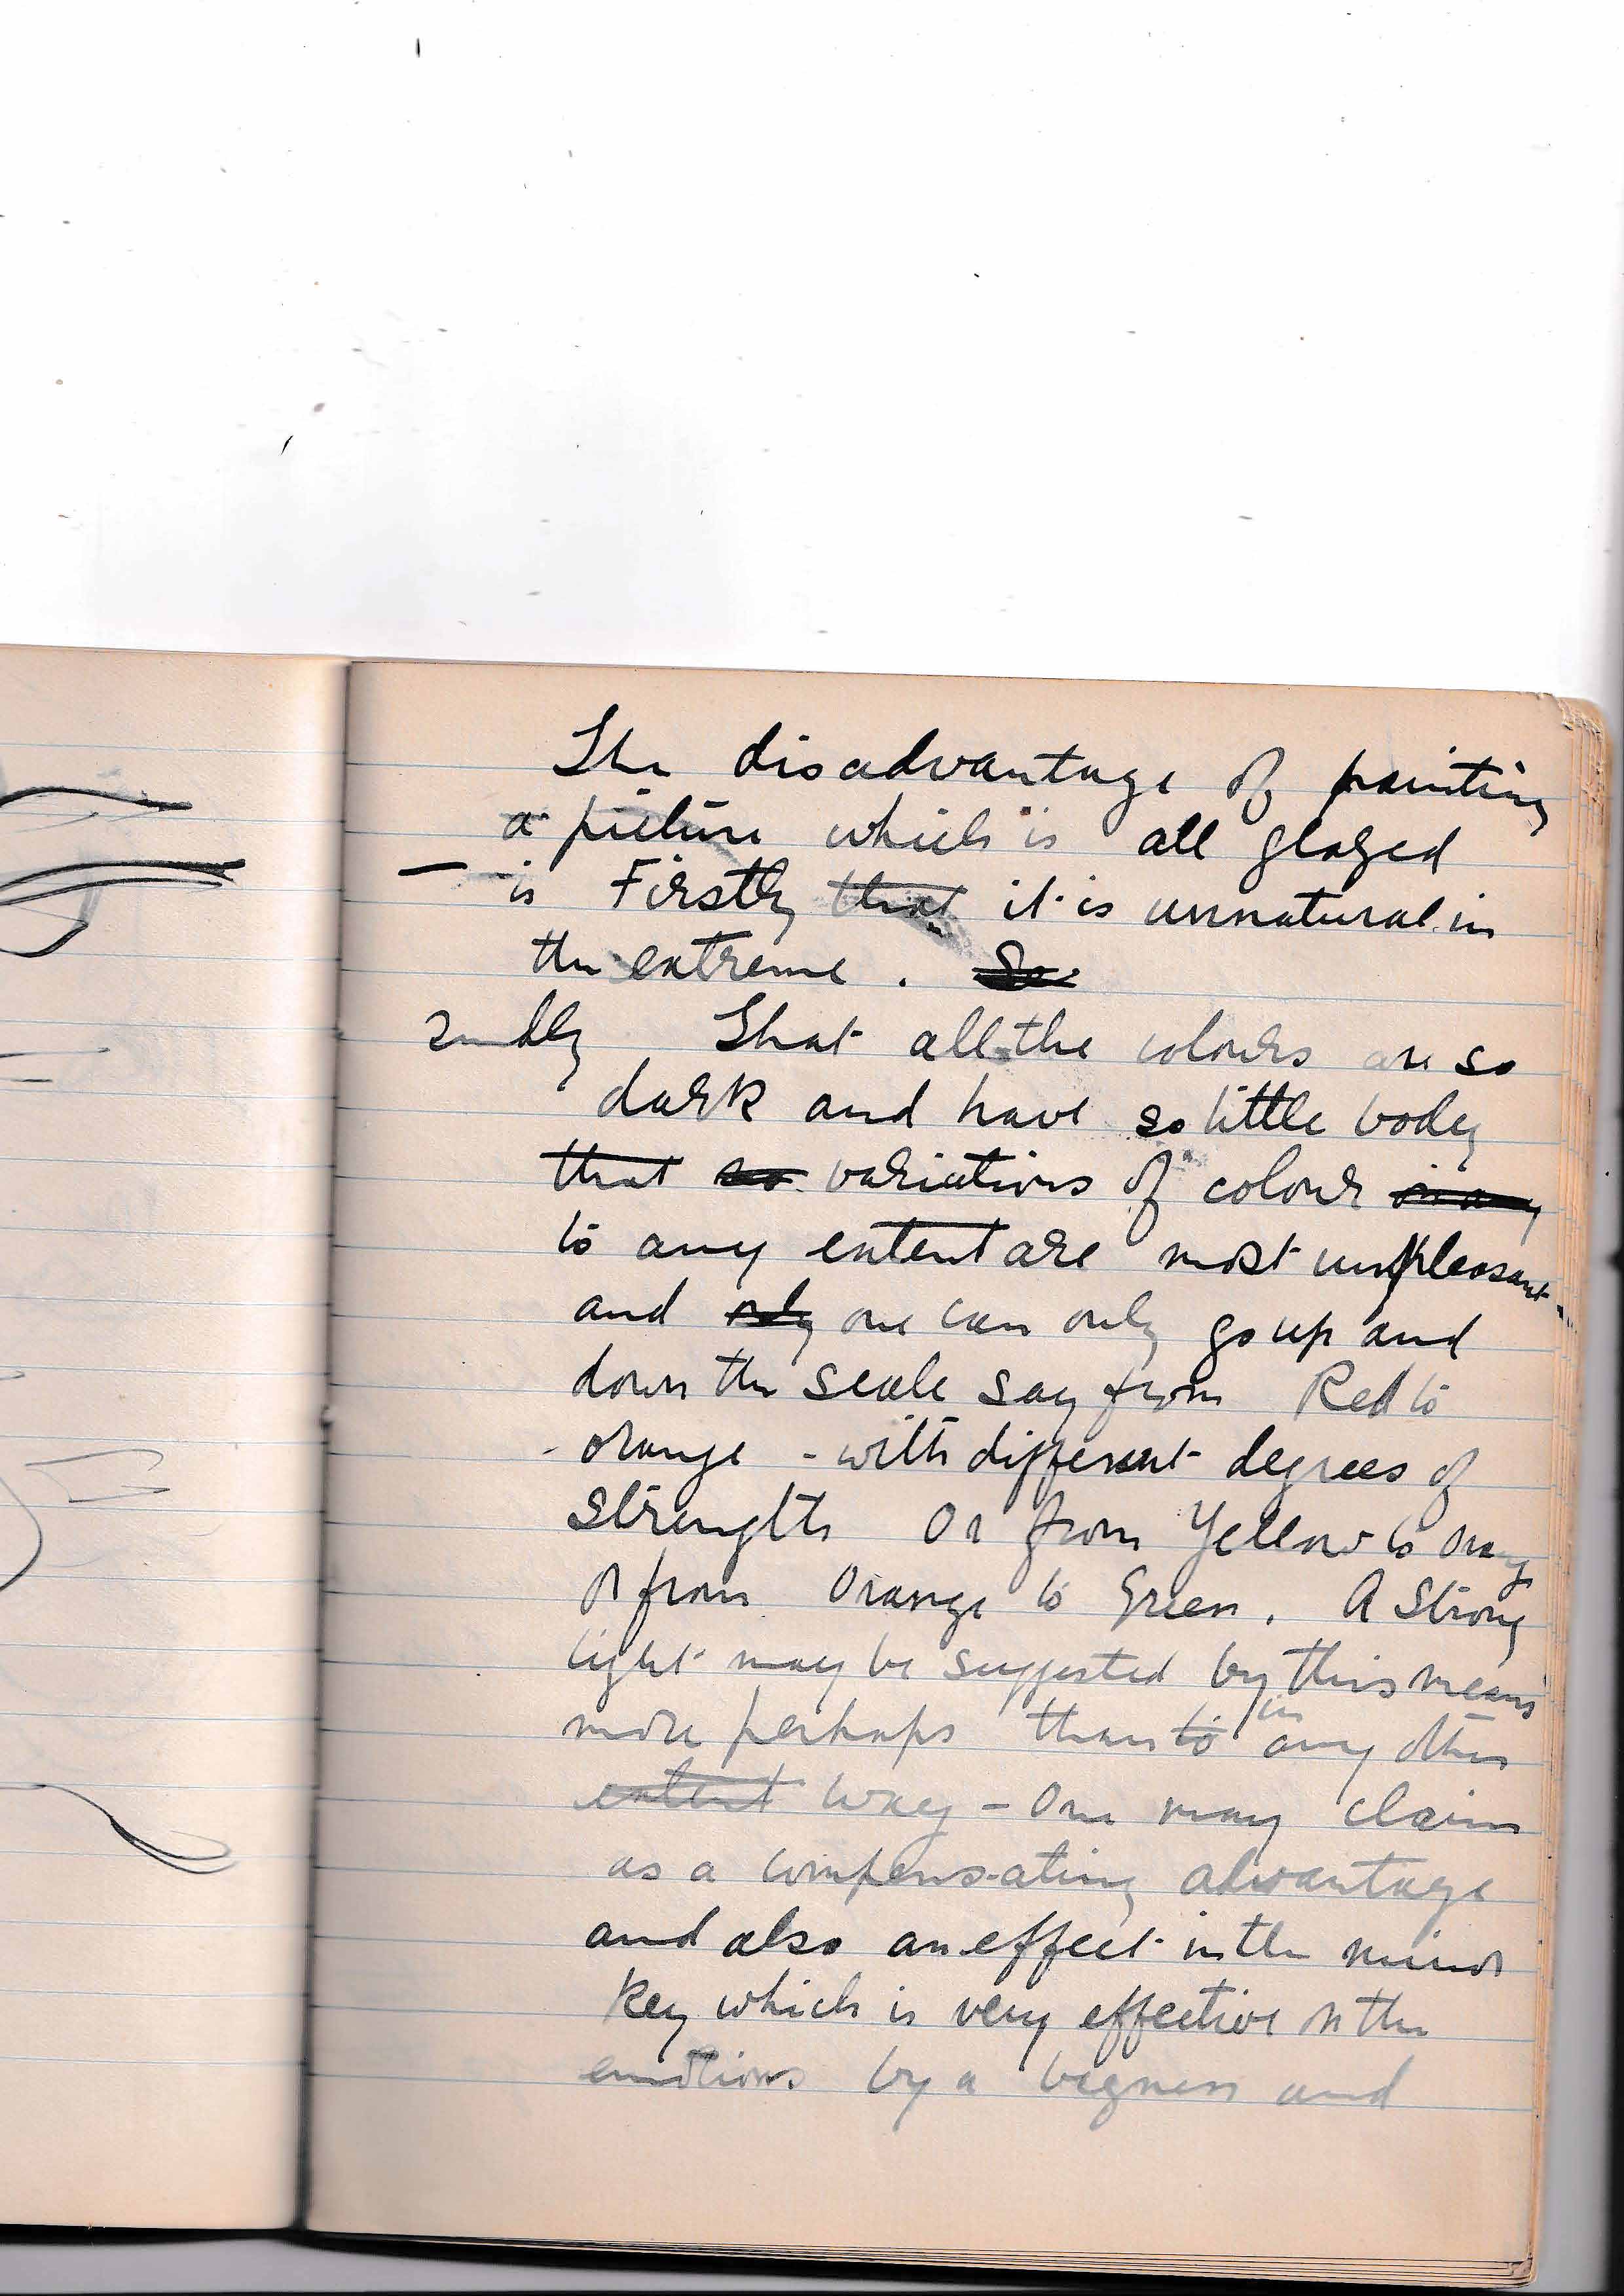 The disadvantage of painting
a picture which is all glazed
— is Firstly that it is unnatural in
the extreme . So
2ndly That all the colours are so
dark and have so little body
that so variations of colour in any
to any extent are most unpleasant
and only one can only go up and
down the scale say from Red to
- orange - with different degrees of
Strength Or from Yellow to Orang
or from Orange to Green . A Strong
light may be suggested by this means
more perhaps than to in any other
extent way - One may claim
as a compensating advantage
and also an effect in the minor
key which is very effective n the
emotions by a vagness and